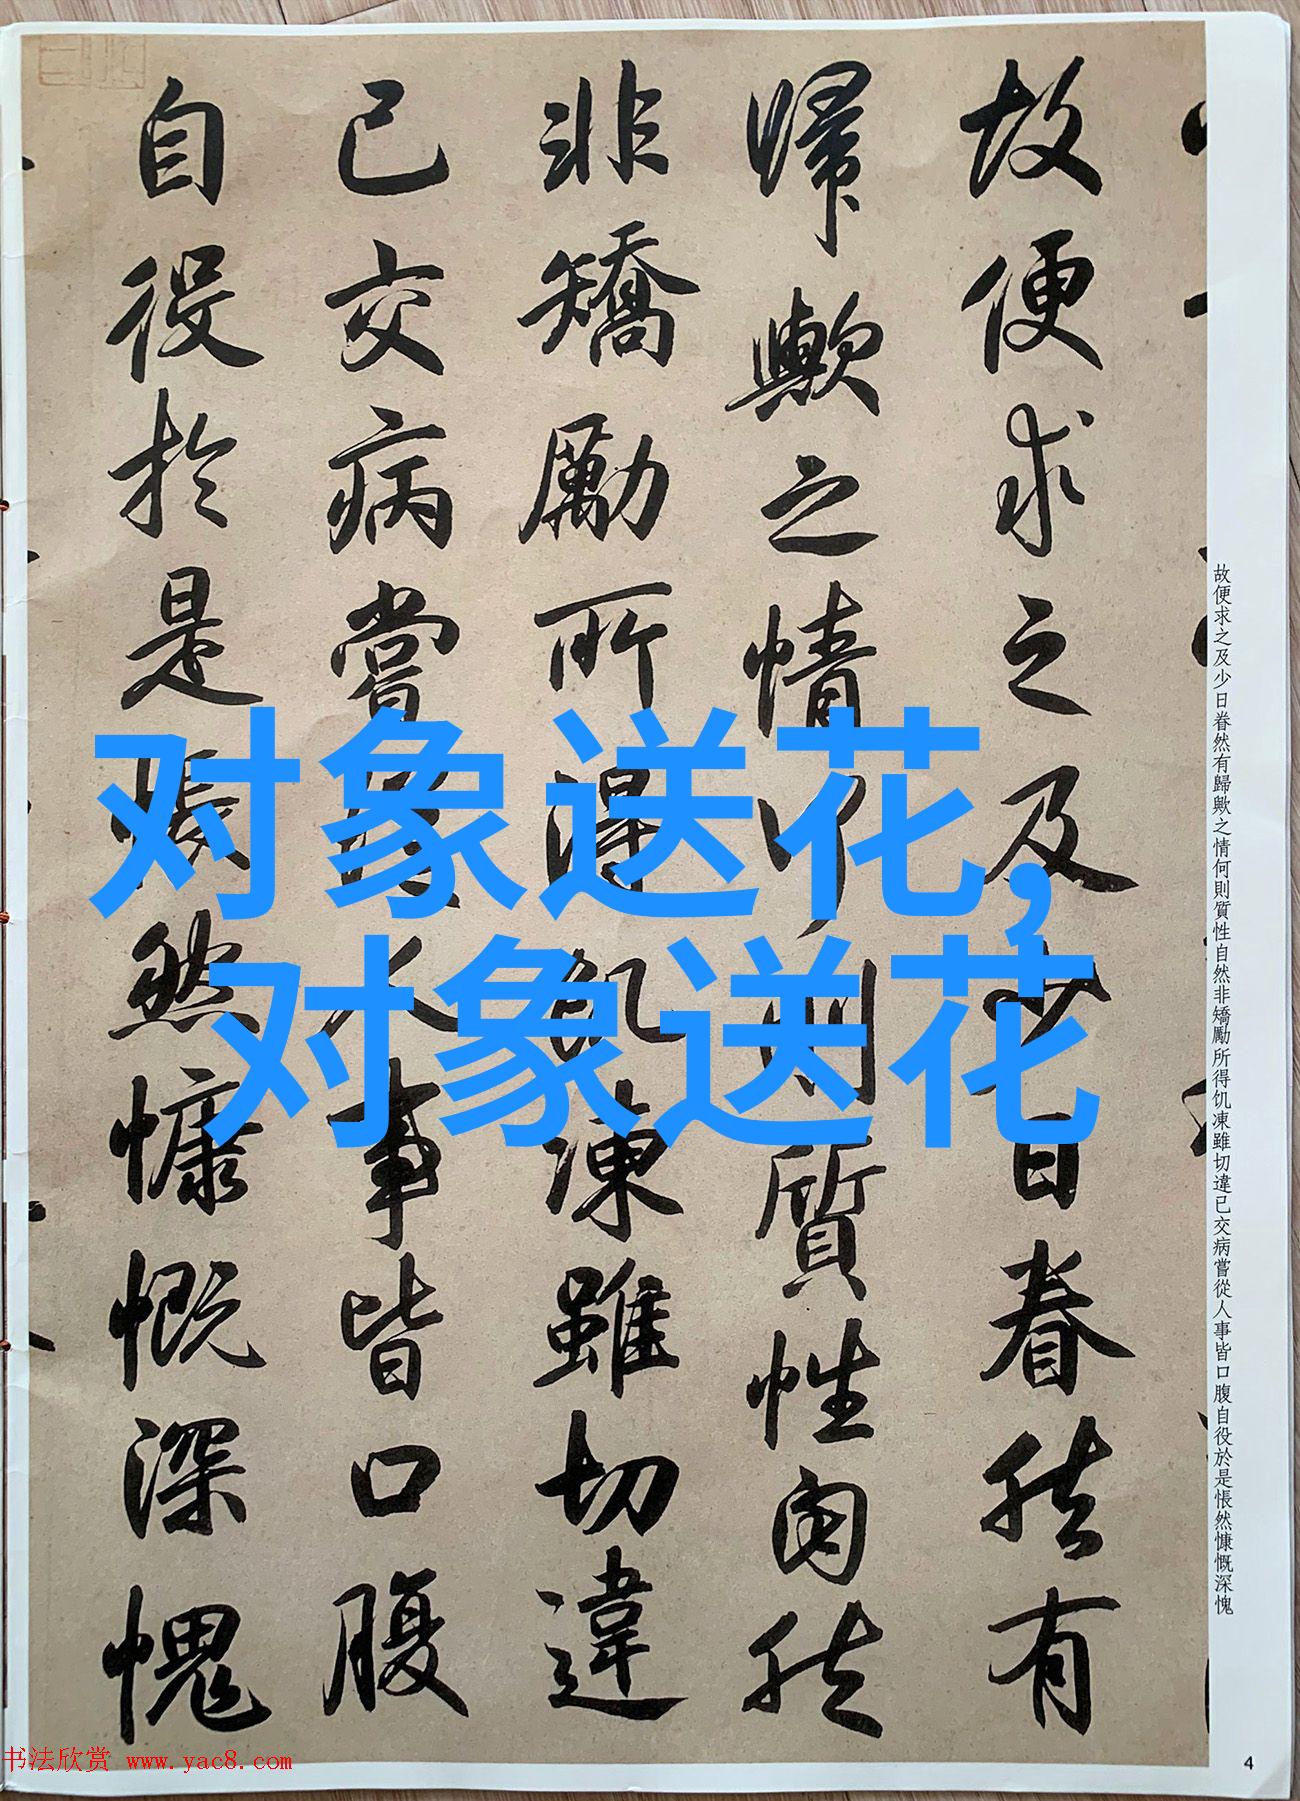 故便求之及少日眷然有歸歟之情何則質性自然非矯勵所得饥凍雖切違已交病嘗從人事皆口腹自役於是悵然慷慨深愧
故便求之及少日眷然有
歸歟之情何則質性自然
非矯勵所得飢凍雖切違
已交病嘗從人事皆口腹
自役於是悵然慷慨深愧
对象送花,
对象送花
书法欣赏 www.yac8.com
4